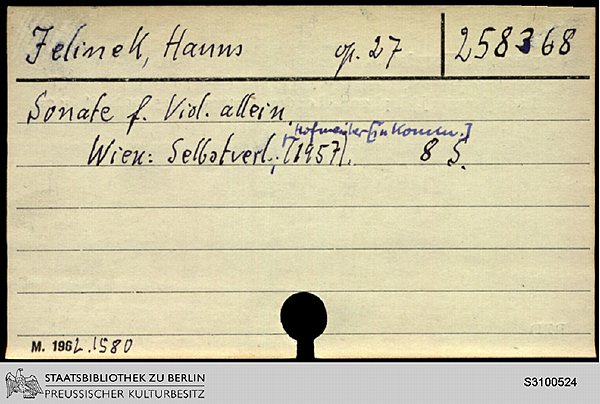 Jelinek, Hanns op. 27 258368
Sonate f. Viol. allein.
Hofmeister [in Komm.]
Wien: Selbstverl.; (1957). 8 S.
M. 1962.1580
STAATSBIBLIOTHEK ZU BERLIN
PREUSSISCHER KULTURBESITZ
S3100524